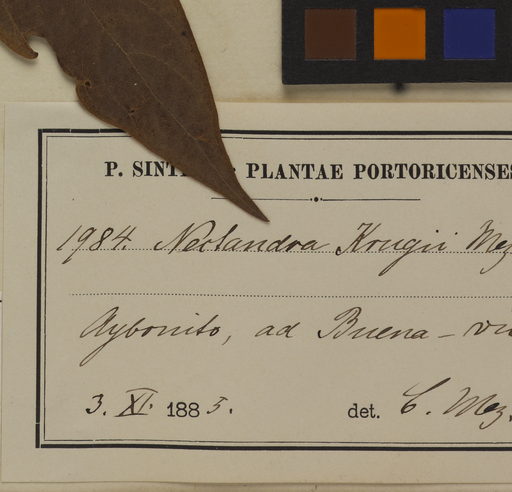 P. SINT PLANTAE PORTORICENSES
1984. Nectandra Krugii Mez
Aybonito, ad Buena-vis
3. XI. 1885.
det. C. Mez.